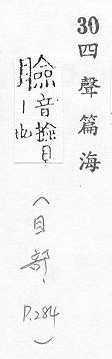 30 四聲篇海
音
丨也
(目部, P.284)